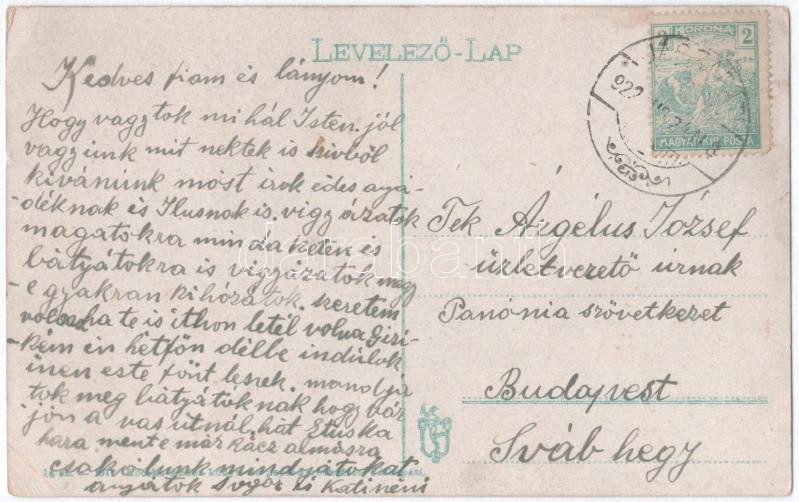 LEVELEZŐ-LAP
Kedves fiam és lányom!
Hogy vagytok mi hál Isten. jól
vagyunk mit nektek is szivből
kivánunk most irok édes anyá-
déknak és Ilusnak is. vigyázatok
magatokra mindaketen és
bátyátokra is vigyázatok meg
e gyakran kihózátok. szeretem
volna ha te is ithon letél volna Giri-
kém én hétfőn délbe indulok
inen este fönt leszek. mondjá
tok meg bátyátoknak hogy vár
jón a vasutnál, hát Etuska
hara. mente már Rácz almásra
csakolunk mindnyátokat
anyátok és Katinéni
KORONA
2
MAGYAR KIR. POSTA
922
Tek Azgélus József
üzletvezető úrnak
Panónia szövetkezet
Budapest
Sváb hegy
darabanth